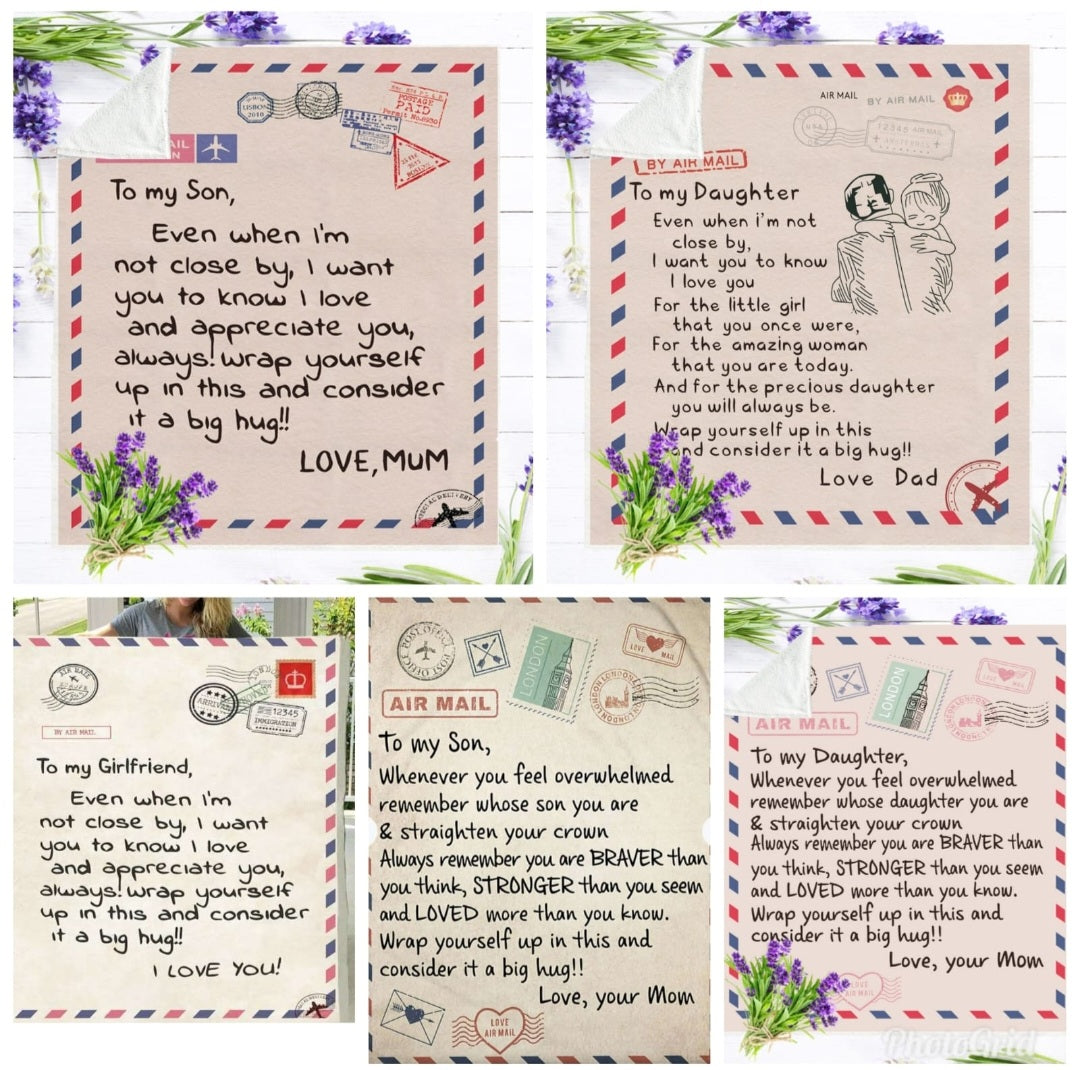 LISBON
2010
POSTAGE
PAID
Permit No.8930
AIL
N
To my Son,
Even when i'm
not close by, I want
you to know I love
and appreciate you,
always! wrap yourself
up in this and consider
it a big hug!!
LOVE, MUM
AIR MAIL
BY AIR MAIL
USA
12345 AIR MAIL
BY AIR MAIL
To my Daughter
Even when i'm not
close by,
I want you to know
I love you
For the little girl
that you once were,
For the amazing woman
that you are today.
And for the precious daughter
you will always be.
Wrap yourself up in this
and consider it a big hug!!
Love Dad
AIR MAIL
ARRIVED
12345
IMMIGRATION
BY AIR MAIL
To my Girlfriend,
Even when i'm
not close by, I want
you to know I love
and appreciate you,
always! wrap yourself
up in this and consider
it a big hug!!
I LOVE YOU!
POST OFFICE
POST OFFICE
LONDON
LOVE MAIL
LONDON LONDON LONDON
AIR MAIL
To my Son,
Whenever you feel overwhelmed
remember whose son you are
& straighten your crown
Always remember you are BRAVER than
you think, STRONGER than you seem
and LOVED more than you know.
Wrap yourself up in this and
consider it a big hug!!
Love, your Mom
LOVE
AIR MAIL
LONDON
LOVE MAIL
AIR MAIL
To my Daughter,
Whenever you feel overwhelmed
remember whose daughter you are
& straighten your crown
Always remember you are BRAVER than
you think, STRONGER than you seem
and LOVED more than you know.
Wrap yourself up in this and
consider it a big hug!!
Love, your Mom
LOVE
AIR MAIL
PhotoGrid